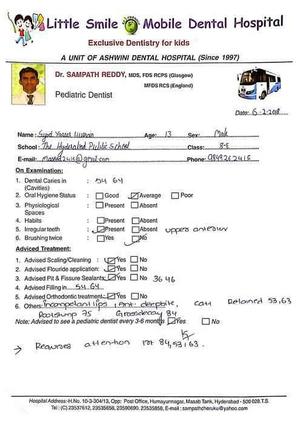 Little Smile Mobile Dental Hospital
Exclusive Dentistry for kids
A UNIT OF ASHWINI DENTAL HOSPITAL (Since 1997)
Dr. SAMPATH REDDY, MDS, FDS RCPS (Glasgow)
MFDS RCS (England)
Pediatric Dentist
Date: 6-2-2018
Name: Syed Hussain Age: 13 Sex: Male
School: The Hyderabad Public School Class: 8-E
E-mail: @gmail.com Phone:
On Examination:
1. Dental Caries in (Cavities) : 54 64
2. Oral Hygiene Status : Good Average Poor
3. Physiological Spaces : Present Absent
4. Habits : Present Absent
5. Irregular teeth : Present Absent upper
6. Brushing twice : Yes No
Adviced Treatment:
1. Advised Scaling/Cleaning : Yes No
2. Advised Flouride application: Yes No
3. Advised Pit & Fissure Sealants: Yes No 36 46
4. Advised Filling in 54, 64
5. Advised Orthodontic treatment: Yes No
6. Others: Incompetent lips, Ant. deepbite, Retained 53, 63
Rootstump 75 84
Note: Advised to see a pediatric dentist every 3-6 months Yes No
→ Requires attention 84, 53, 63.
Hospital Address:-H.No. 10-3-304/13, Opp: Post Office, Humayunnagar, Masab Tank, Hyderabad - 500 028 T.S.
Tel: (C) 23537612, 23535658, 23590690, 23535858, E-mail : sampathcheruku@yahoo.com